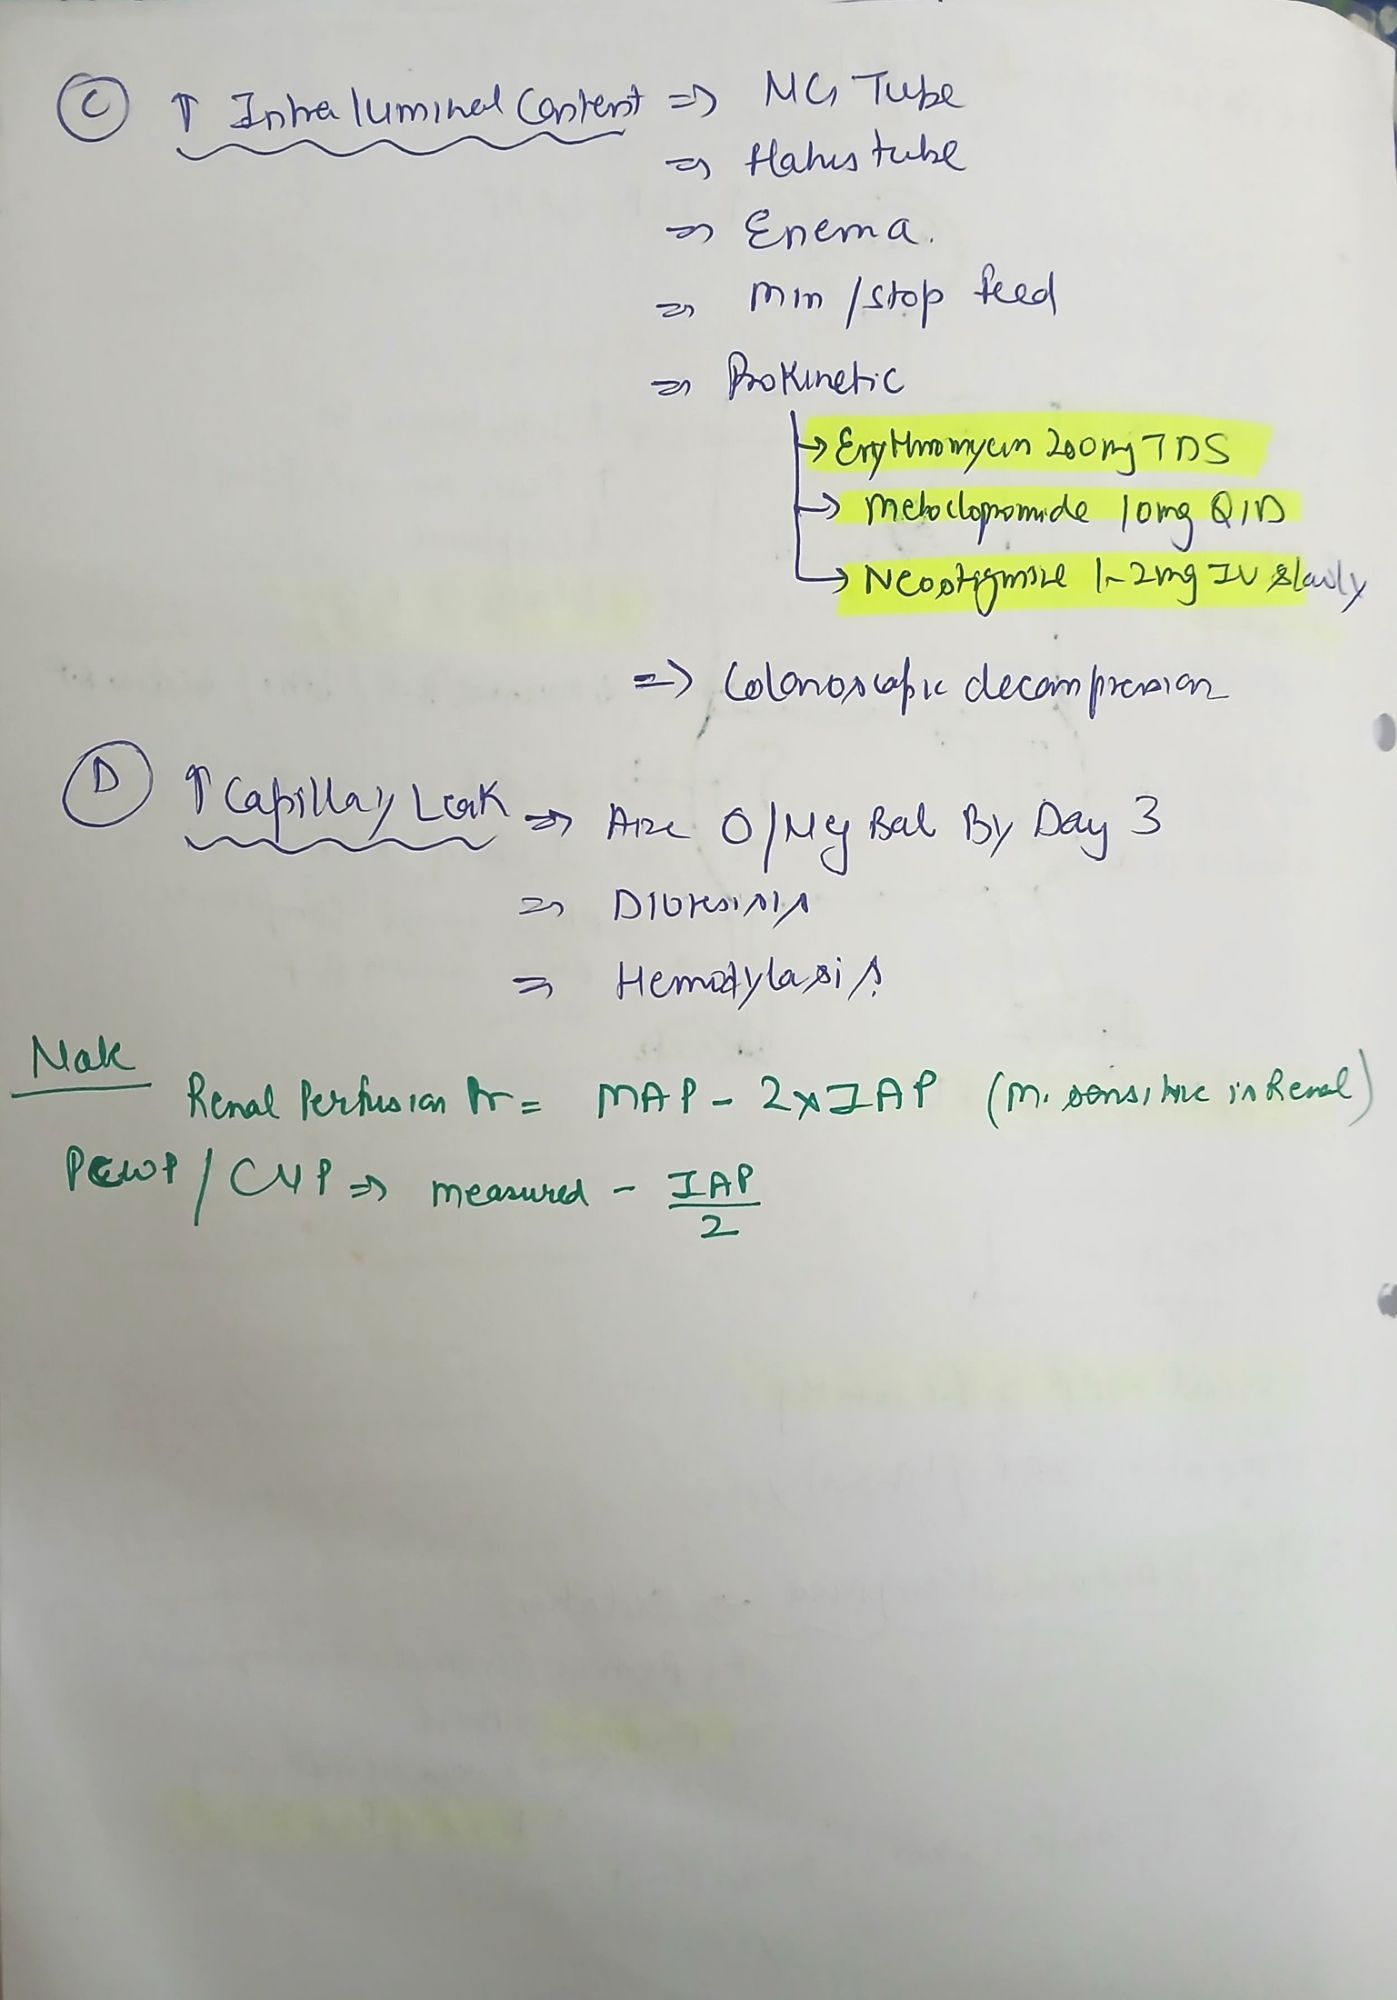 (C) ↑ Intraluminal Content => NG Tube
=> flatus tube
=> Enema.
=> Min / stop feed
=> Prokinetic
→ Erythromycin 200mg TDS
→ Metoclopromide 10mg QID
→ Neostigmine 1-2mg IV slowly
=> Colonoscopic decompression
(D) ↑ Capillary Leak => Aim 0/Neg Bal By Day 3
=> Diuresis
=> Hemodylasis.
Note
Renal Perfusion Pr = MAP - 2xIAP (M. sensitive is Renal)
PCWP / CVP => measured - IAP/2